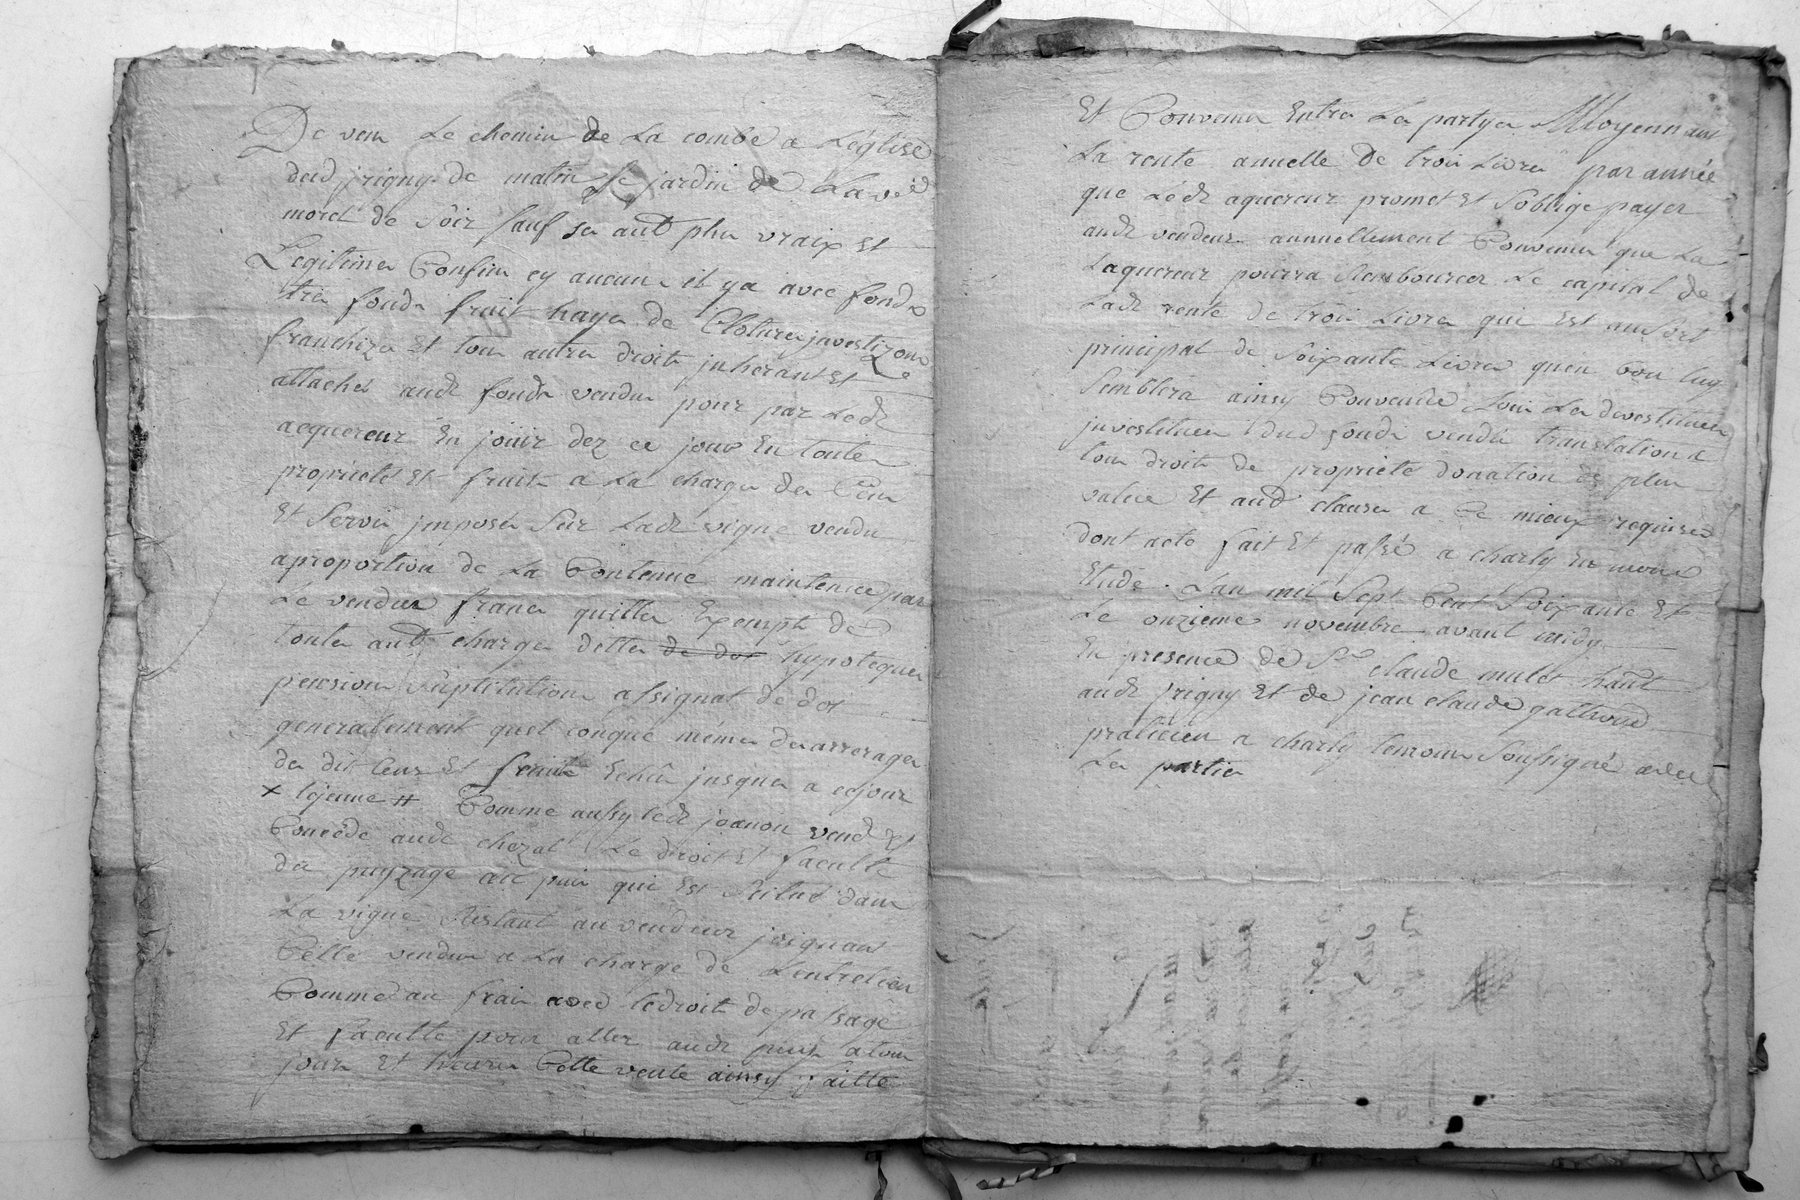 De vem Le chemin de La combe a Léglise
dud jrigny de matin Le jardin de La ved
morel de Sôir sauf ses autt plus vraix Et
Legitimes Confins cy aucuns il y a avec fonds
tres fonds fruit hayes de Cloture jnvestizons
franchizes Et tous autres droits jnhérant Et
attachés audt fonds vendus pour par Ledt
acquereur En joüir dez ce jour En toutes
proprietés Et fruits a La charges des Cens
Et Servis jmposés Sur Ladt vigne vendu
aproportion de La Contenüe maintenüe par
Le vendeur francs quittes Exempts de
toutes autt charges dettes de dot hypoteques
pensions Suptitutions assignat de dot
generalement quel conque mémes des arrerages
des dit Cens Et Servis Echûs jusques a cejour
x lejeune # Comme aussy ledt joanon vend Et
Concéde audt chezal Le droit Et faculté
de puyzage au puis qui Est Scitué dans
La vigne Restant au vendeur joignant
Celle vendue a La charge de Lentretien
Comme au frais aved ledroit de passage
Et faculté pour aller audt puis a tous
jours Et heures Cette vente ainsy faitte
Et Convenue Entre Les partyes Moyennant
La rente annuelle de trois Livres par année
que Lédt aquereur promet Et Soblige payer
audt vendeur annuellement Convenus que La
Laquereur pourra Rembourcer Le capital de
Ladt rente de trois Livres qui Est au Sort
principal de Soixante Livres quen bon luy
Semblera ainsy Convenüe Sous Les devestitues
jnvestitues dud fonds vendu translation a
tous droits de proprieté donation de plus
value Et autt clauses a ce mieux requises
dont acte fait Et passé a charly En mon
Etude. Lan mil Sept Cent Soixante Et
Le onzieme novembre avant midy
En presence de Sr claude mulet hant
audt jrigny Et de jean claude
praticien a charly temoins Soussigné avec
Les parties